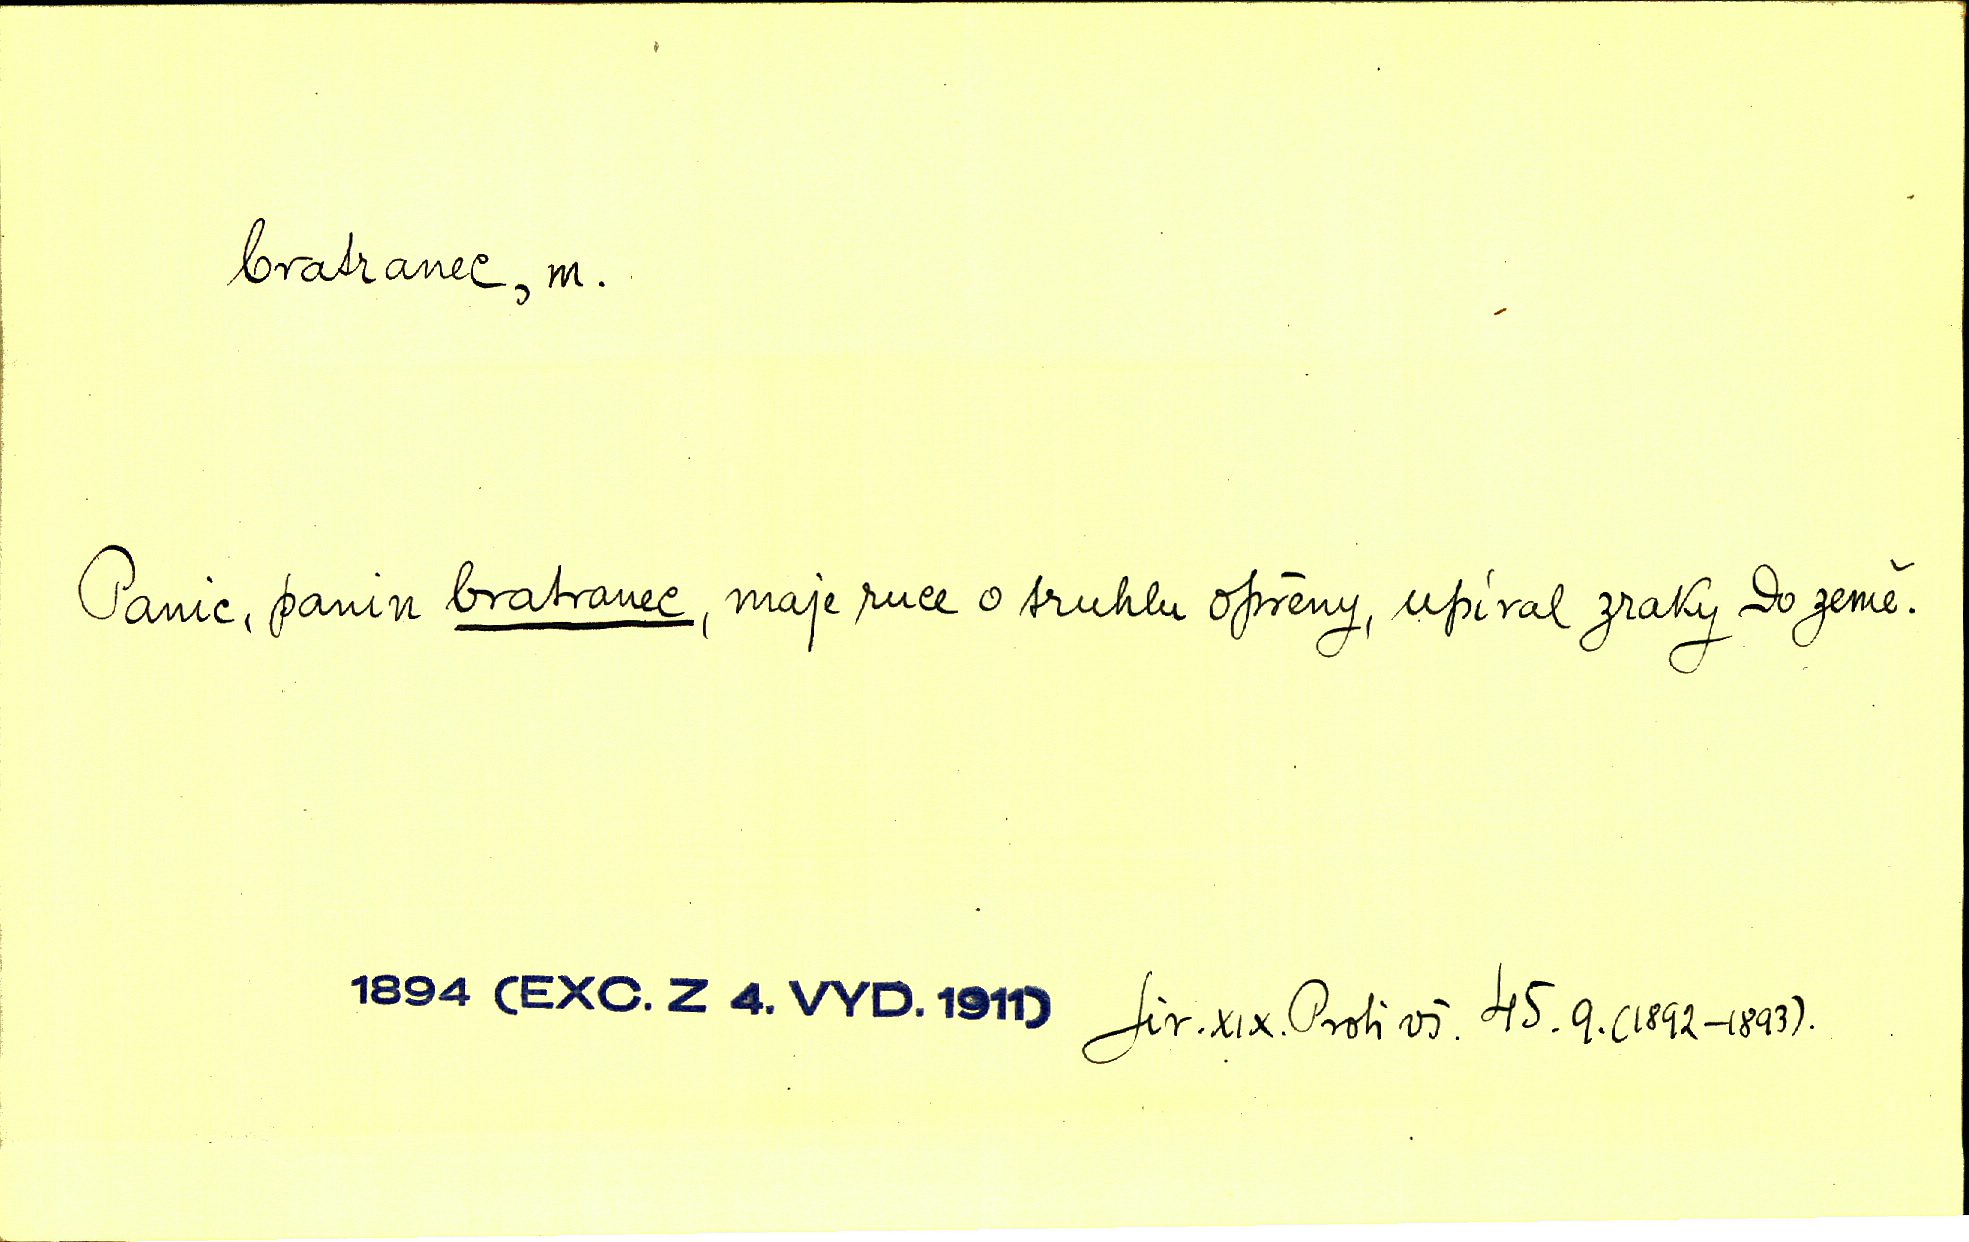 bratranec, m.
Panic, panin bratranec, maje ruce o truhlu opřeny, upíral zraky do země.
1894 (EXC. Z 4. VYD. 1911) Jir. XIX. Proti vš. 45. 9. (1892–1893).